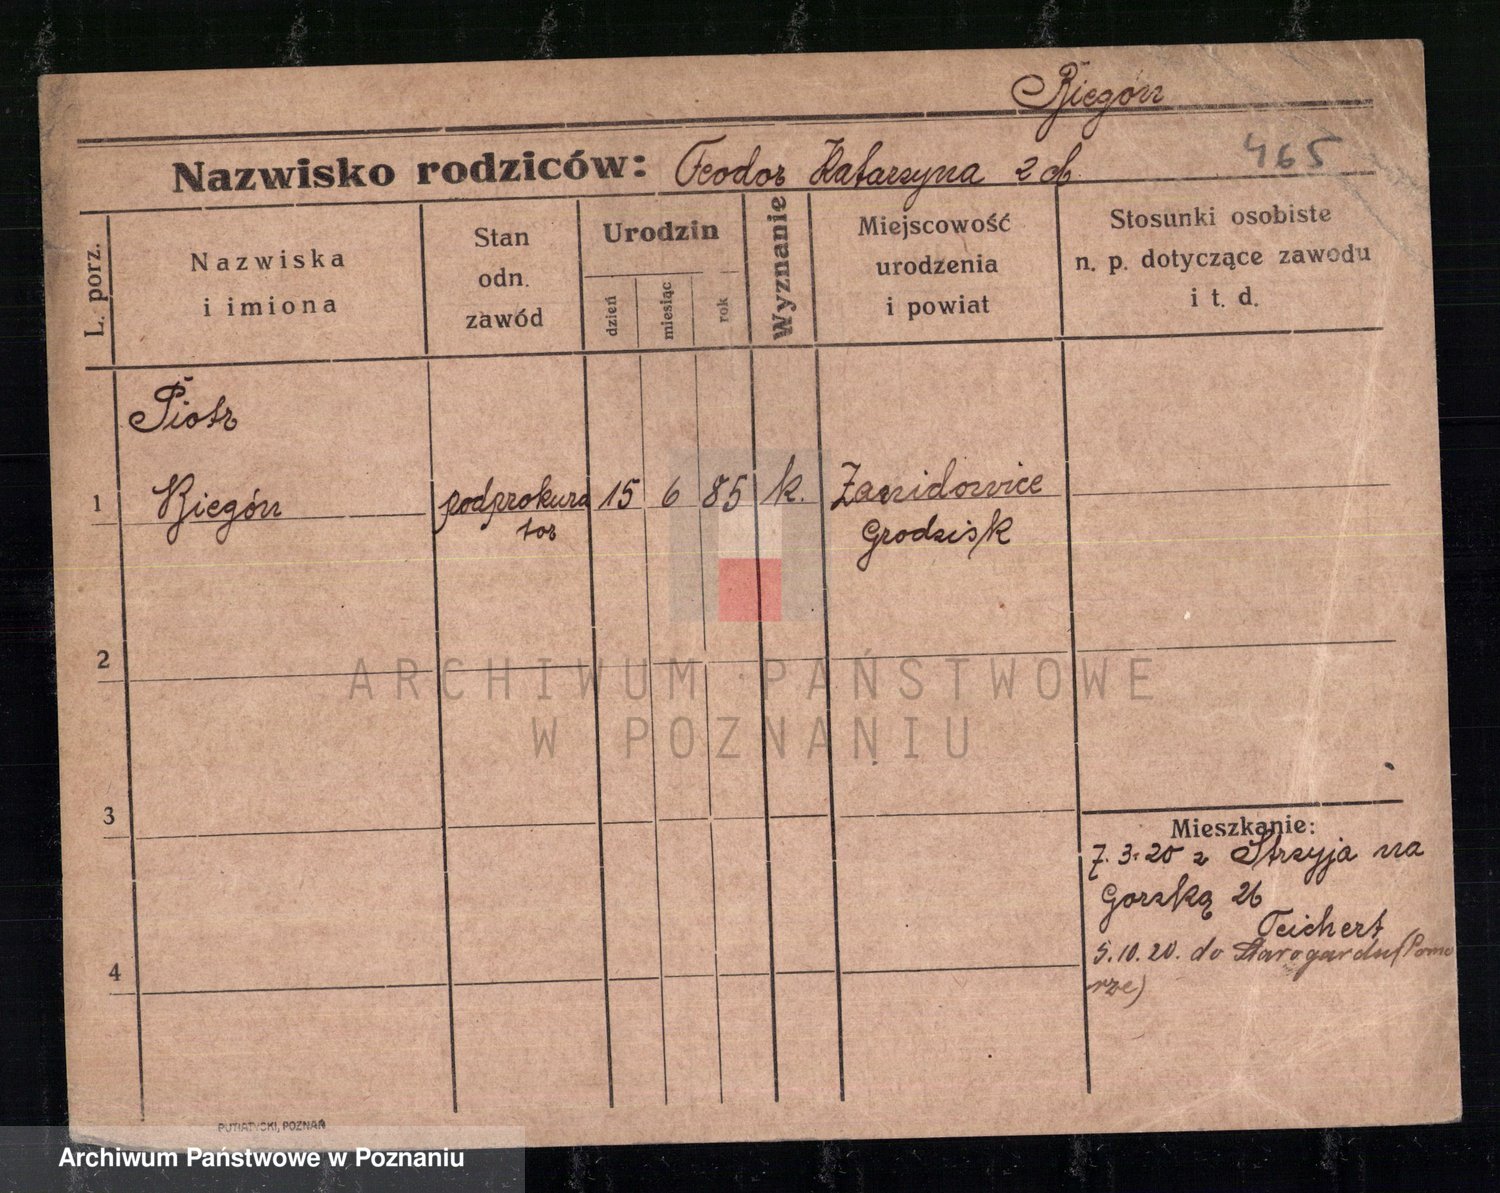 Biegón
465
Nazwisko rodziców: Teodor Katarzyna z d.
L. porz.
Nazwiska
i imiona
Stan
odn.
zawód
Urodzin
dzień
miesiąc
rok
Wyznanie
Miejscowość
urodzenia
i powiat
Stosunki osobiste
n. p. dotyczące zawodu
i t. d.
Piotr
1 Biegón podprokura 15 6 85 k. Zawidowice
tor Grodzisk
2
3
4
Mieszkanie:
7.3.20 z Strzyja na
Gorską 26
Teichert
5.10.20. do Starogardu (Pomo
rze)
ARCHIWUM PAŃSTWOWE
W POZNANIU
PUTIATYCKI, POZNAŃ
Archiwum Państwowe w Poznaniu